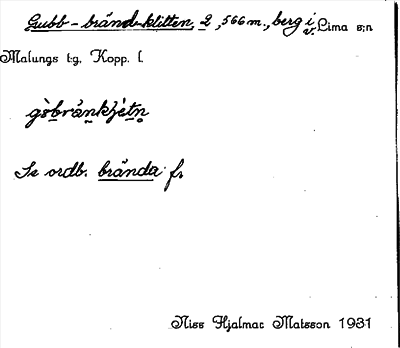 Gubb-brändeklitten, 2, 566 m., berg i v. Lima s:n
Malungs t:g. Kopp. l.
gòbrånkḷètn
Se ordb. brända f.
Niss Hjalmar Matsson 1931